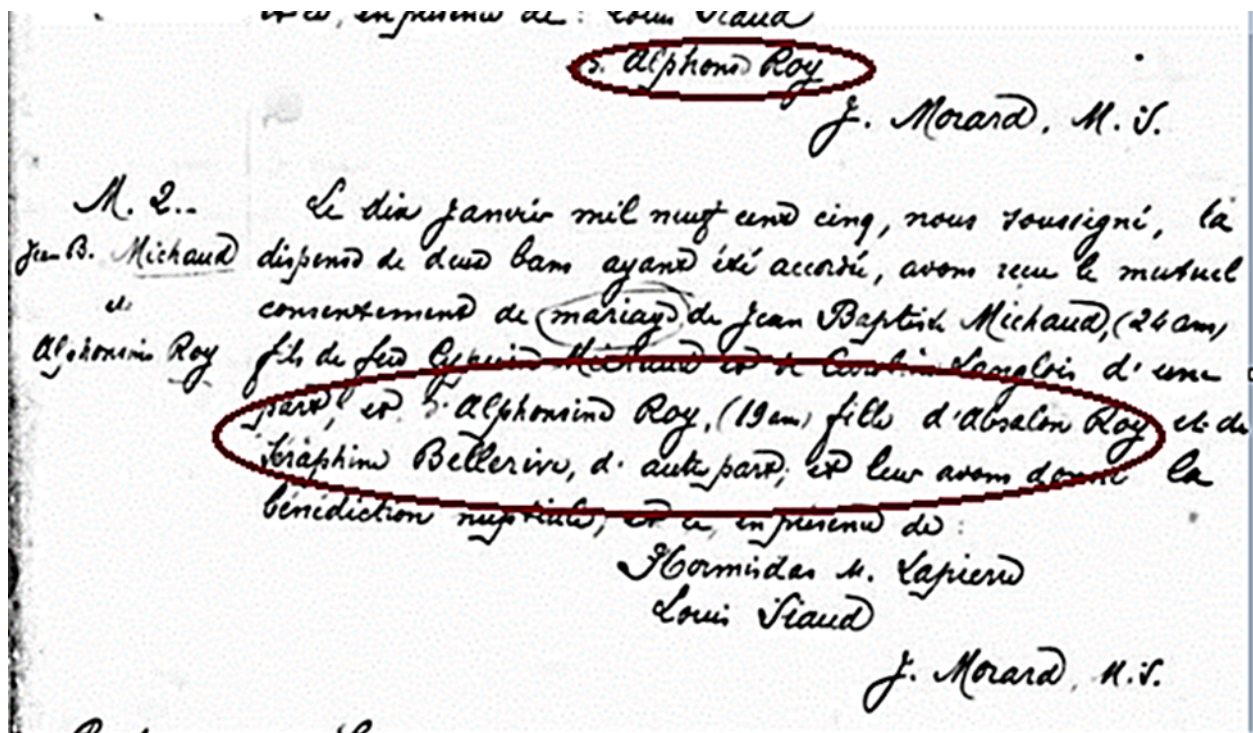 et ce, en présence de : Louis Viaud
S. Alphonse Roy
J. Morard, M. S.
M. 2.. Le dix Janvier mil neuf cent cinq, nous soussigné, la
Jean B. Michaud dispense de deux bans ayant été accordée, avons reçu le mutuel
et consentement de mariage de Jean Baptiste Michaud, (26 ans)
Alphonsine Roy fils de feu Cyprien Michaud et de Caroline Langlois d'une
part, et d'Alphonsine Roy, (19 ans) fille d'Absalon Roy et de
Séraphine Bellerive, d'autre part, et leur avons donné la
bénédiction nuptiale, et ce, en présence de :
Hormisdas M. Lapierre
Louis Viaud
J. Morard, M.S.